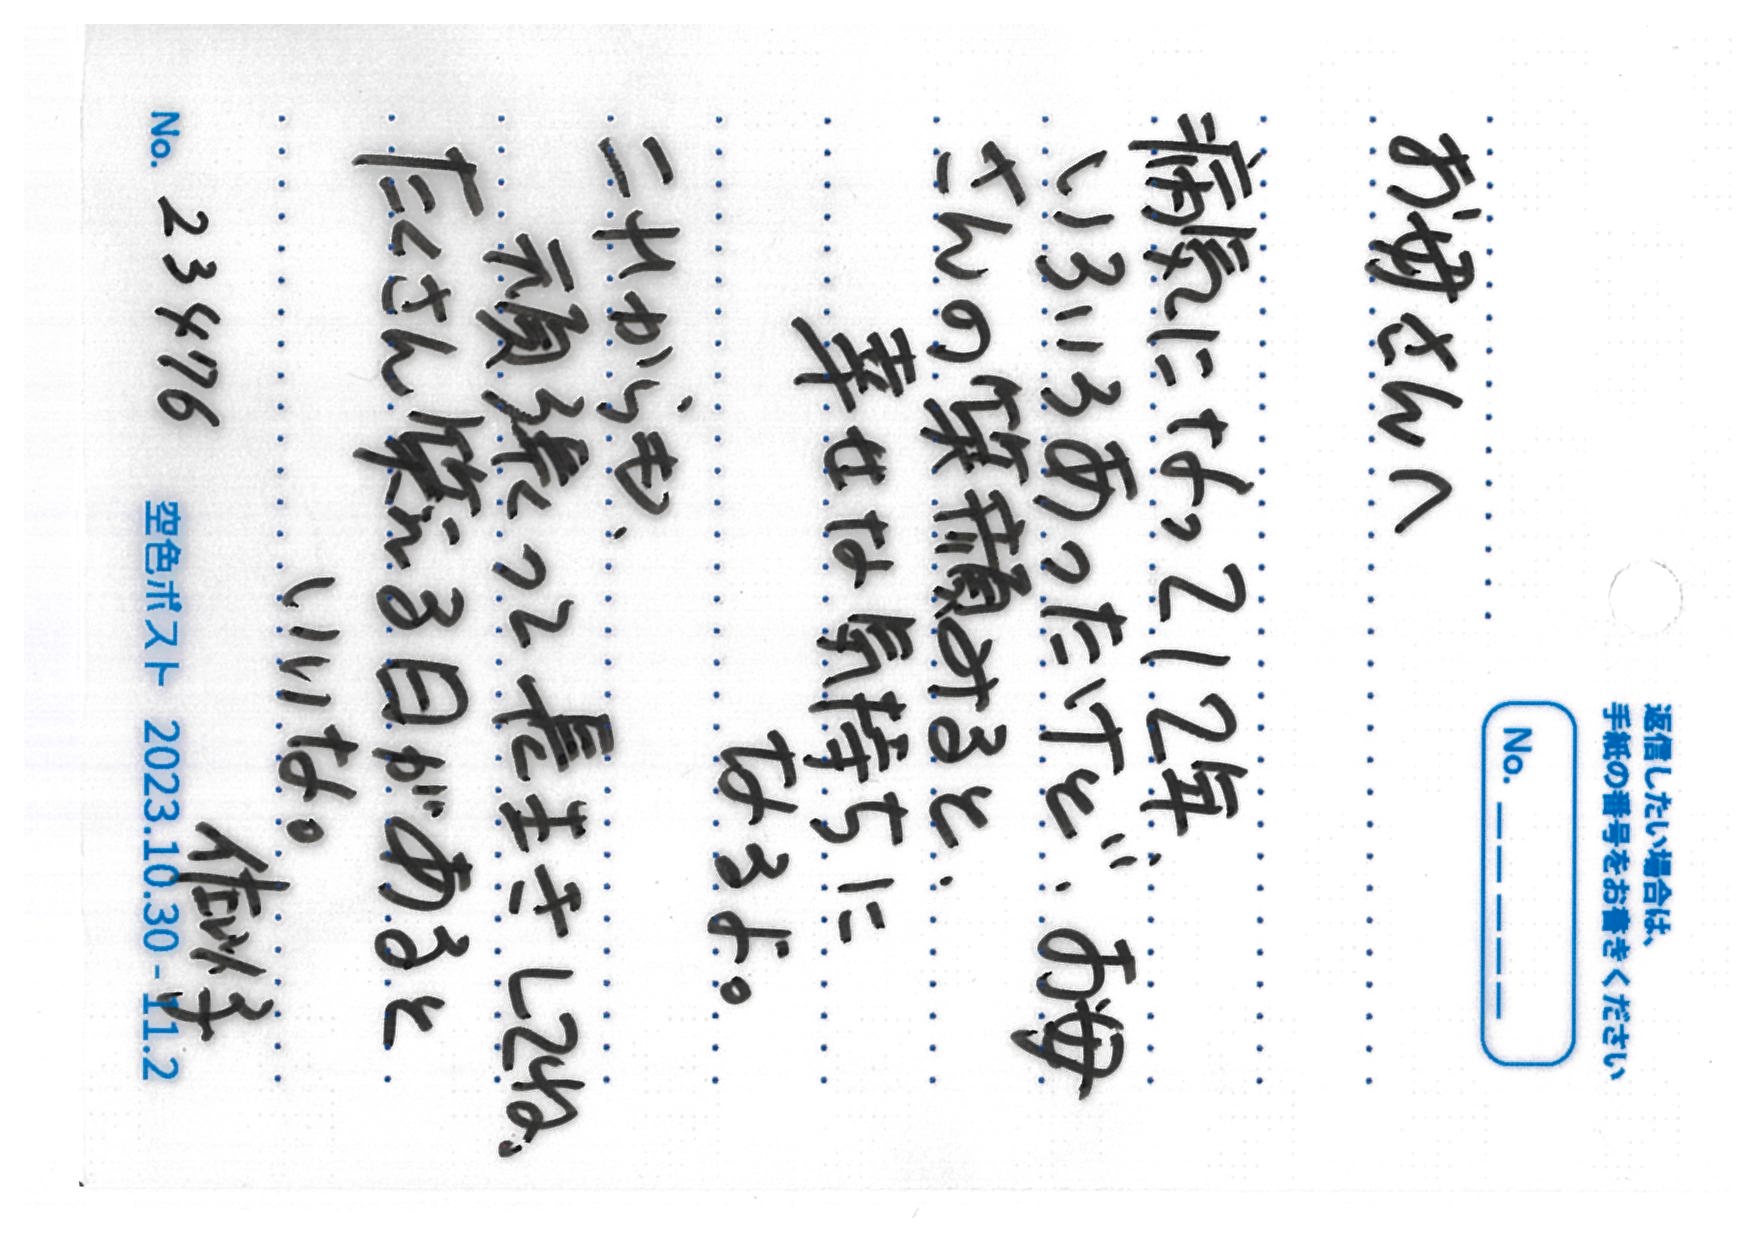 返信したい場合は、
手紙の番号をお書きください
No. _ _ _ _ _
お母さんへ
病気になって12年、
いろいろあったけど、お母
さんの笑顔みると、
幸せな気持ちに
なるよ。
これからも、
頑張って長生きしてね、
たくさん笑える日があると
いいな。
佐以子
No. 23476
空色ポスト 2023.10.30 - 11.2